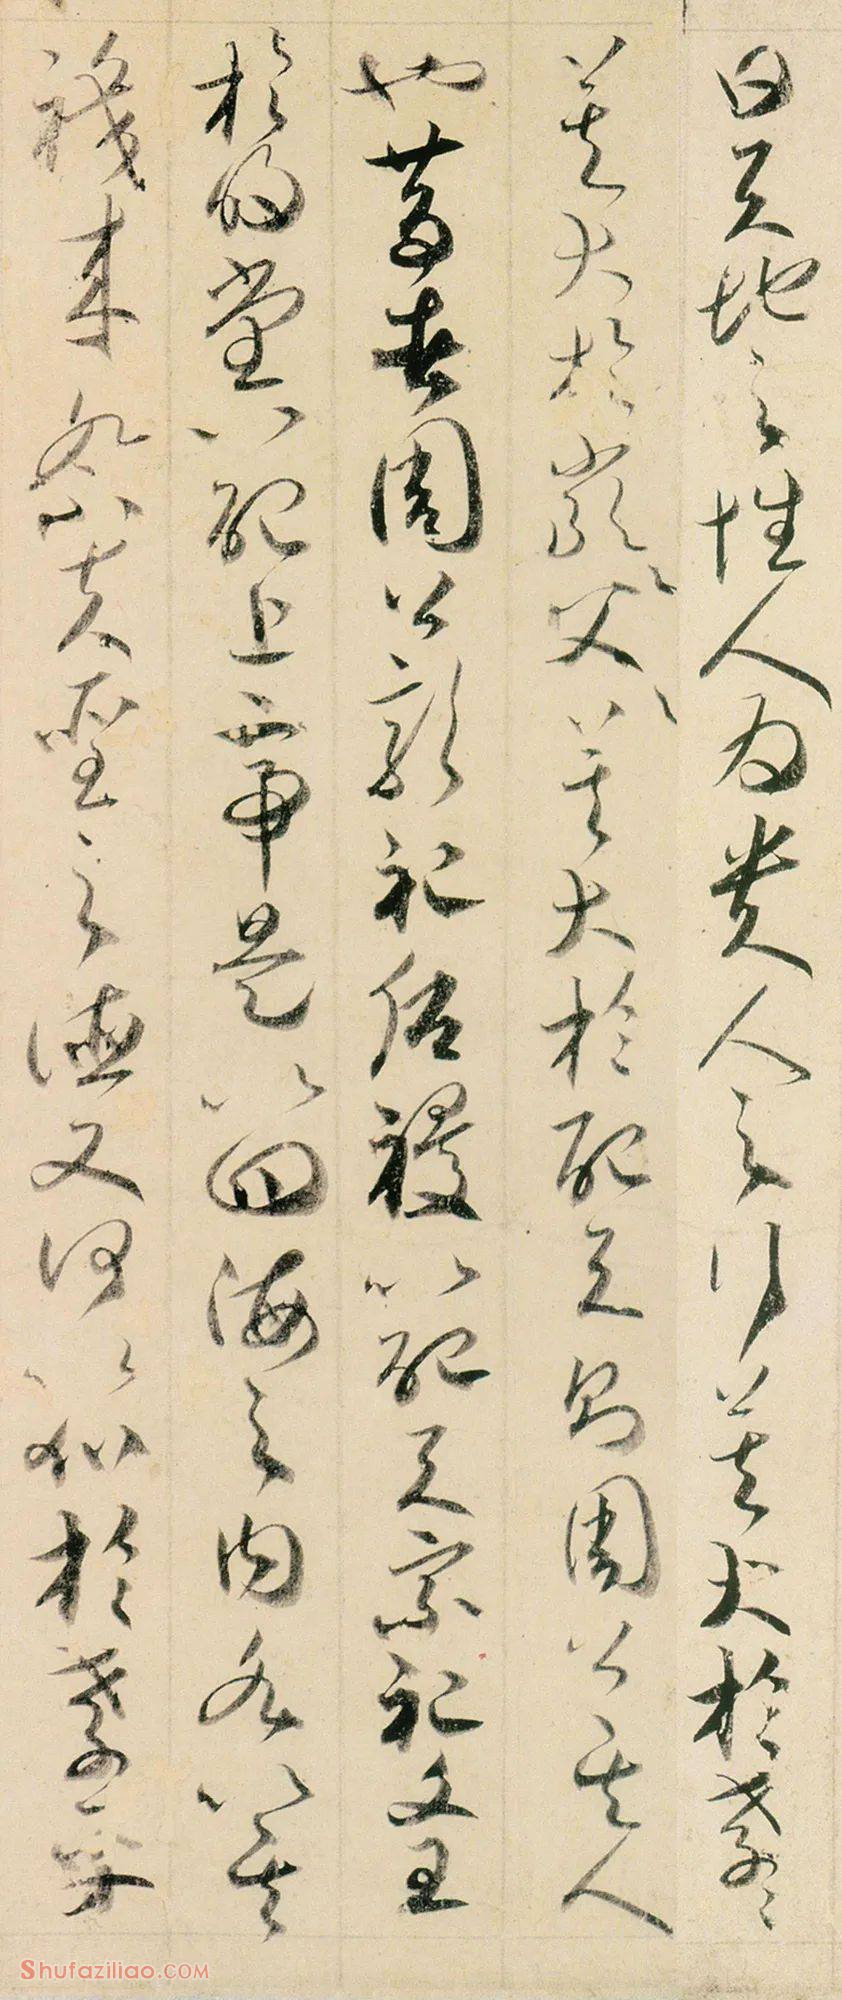 曰天地之性人為貴人之行莫大於孝〻
莫大於嚴〻父〻莫大於配天則周公其人
也昔者周公郊祀后稷以配天宗祀文王
於明堂以配上帝是以四海之內各以其
職来祭夫聖之德又何以加於孝乎
Shufaziliao.COM